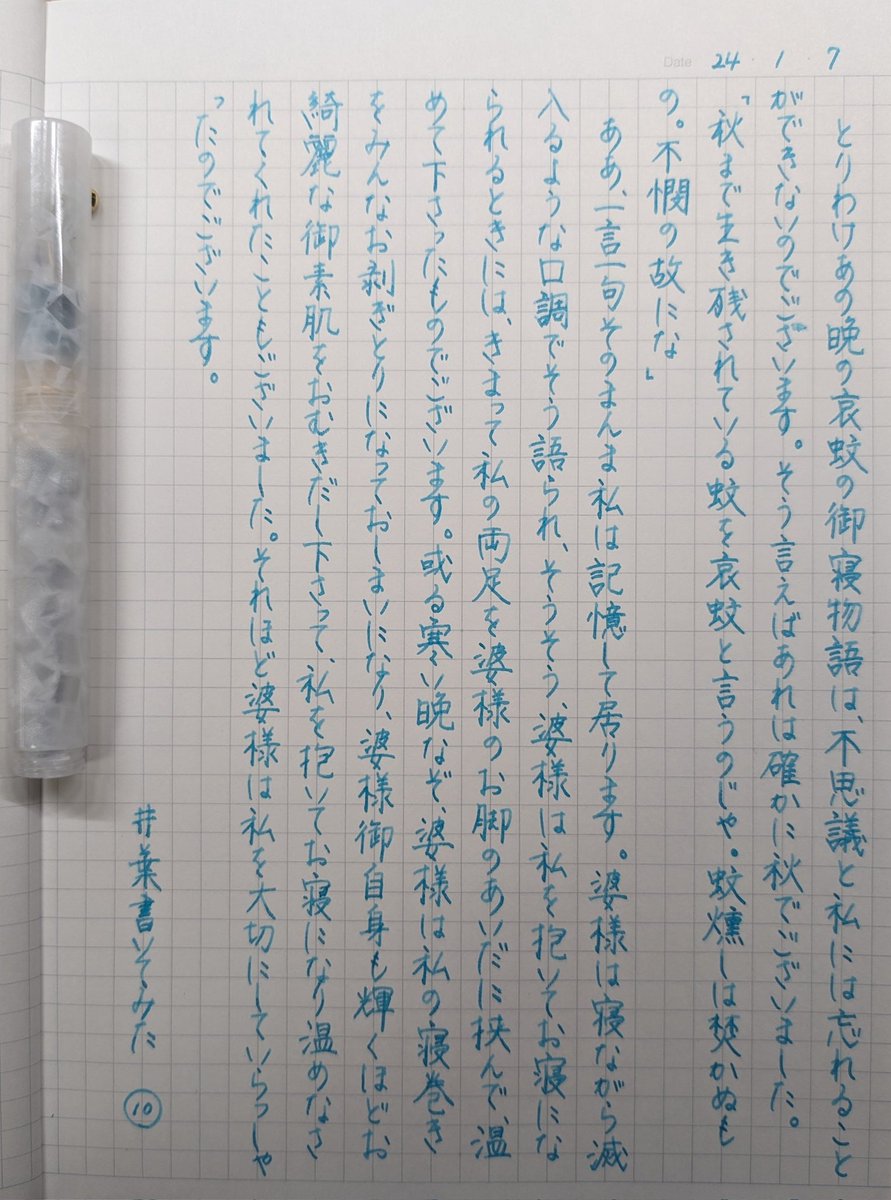 Date 24・1・7
とりわけあの晩の哀蚊の御寝物語は、不思議と私には忘れること
ができないのでございます。そう言えばあれは確かに秋でございました。
「秋まで生き残されている蚊を哀蚊と言うのじゃ。蚊燻しは焚かぬも
の。不憫の故にな」
ああ、一言一句そのまんま私は記憶して居ります。婆様は寝ながら滅
入るような口調でそう語られ、そうそう、婆様は私を抱いてお寝にな
られるときには、きまって私の両足を婆様のお脚のあいだに挟んで、温
めて下さったものでございます。或る寒い晩なぞ、婆様は私の寝巻き
をみんなお剥ぎとりになっておしまいになり、婆様御自身も輝くほどお
綺麗な御素肌をおむきだし下さって、私を抱いてお寝になり温めなさ
れてくれたこともございました。それほど婆様は私を大切にしていらっしゃ
ったのでございます。
#葉書いてみた ⑩